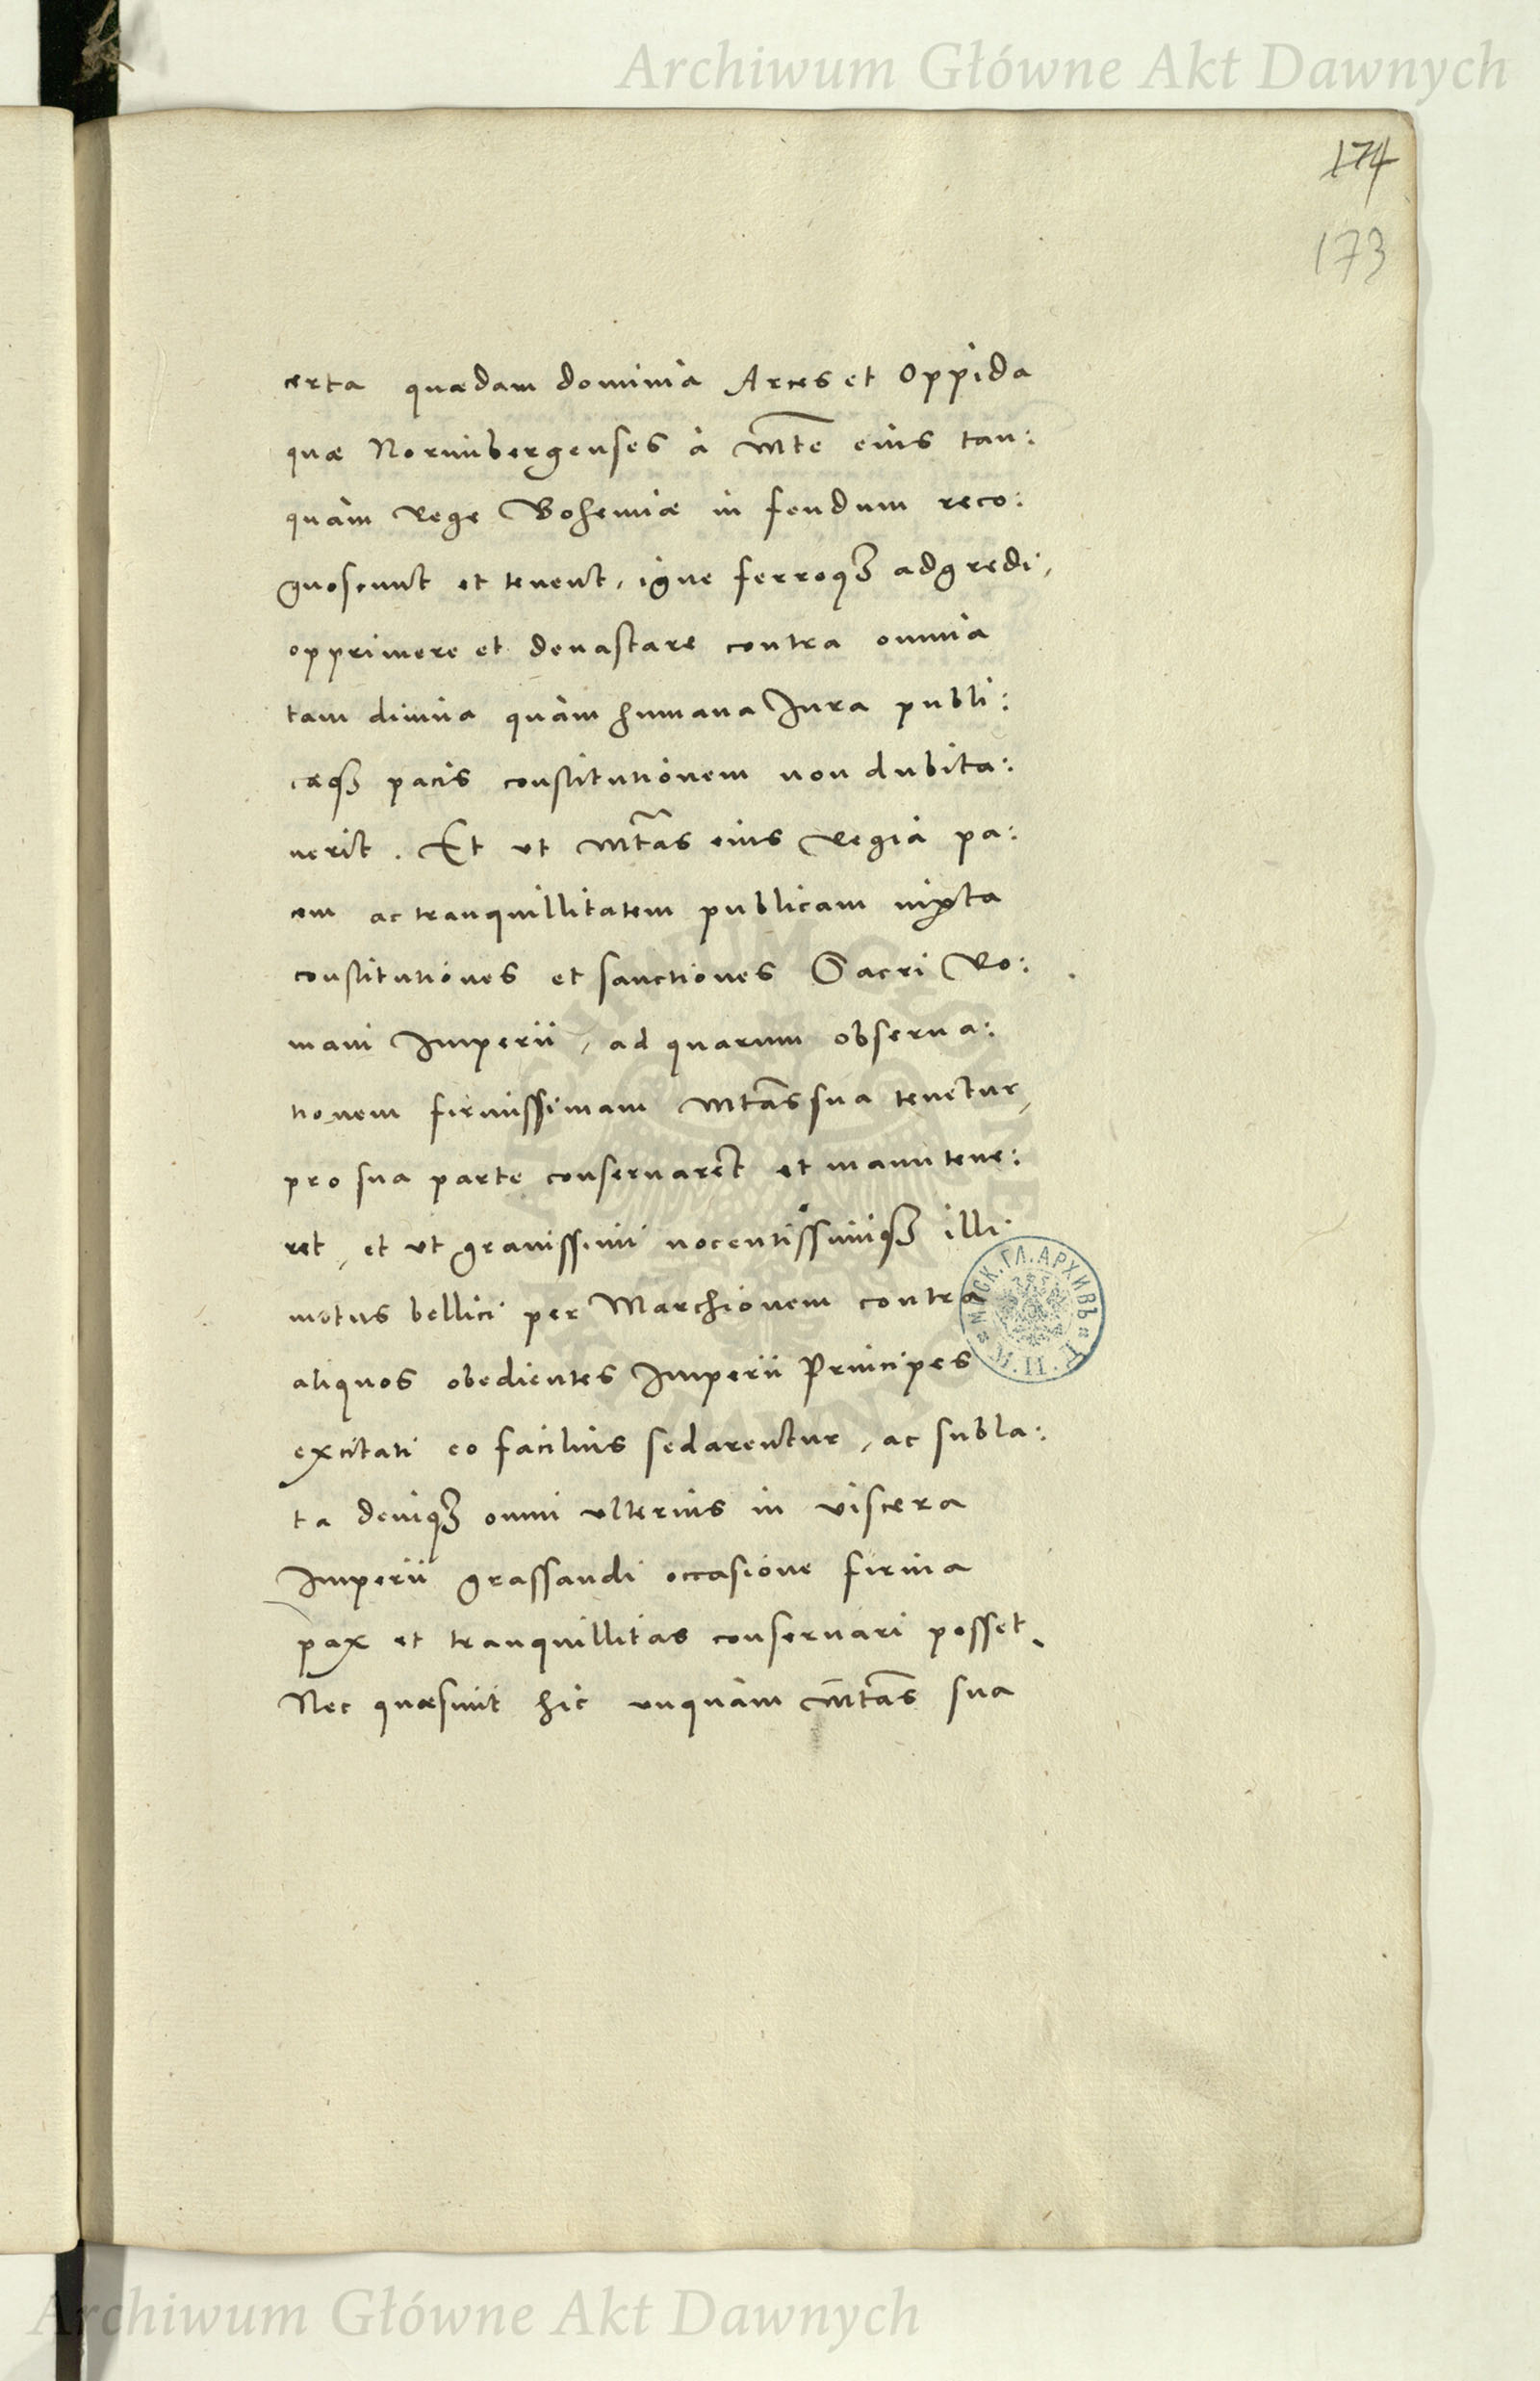 Archiwum Główne Akt Dawnych
174
173
certa quædam dominia Arces et Oppida
quæ Norimbergenses à Mte eius tan:
quàm Rege Bohemiæ in feudum reco:
gnoscunt et tenent, igne ferroq3 adgredi,
opprimere et deuastare contra omnia
tam diuina quàm humana Jura publi:
cæq3 pacis constitutionem non dubita:
uerit. Et ut Mtas eius Regia pa:
cem ac tranquillitatem publicam iuxta
constitutiones et sanctiones Sacri Ro:
mani Imperii, ad quarum obserua:
tionem firmissimam Mtas sua tenetur,
pro sua parte conseruaret et manutene:
ret, et ut grauissimi nocentissimiq3 illi
motus bellici per Marchionem contra
aliquos obedientes Imperii Principes
excitati eo facilius sedarentur, ac subla:
ta deniq3 omni ulterius in viscera
Imperii grassandi occasione firma
pax et tranquillitas conseruari posset.
Nec quæsiuit hic unquàm Mtas sua
МОСК. ГЛ. АРХИВЪ
Archiwum Główne Akt Dawnych